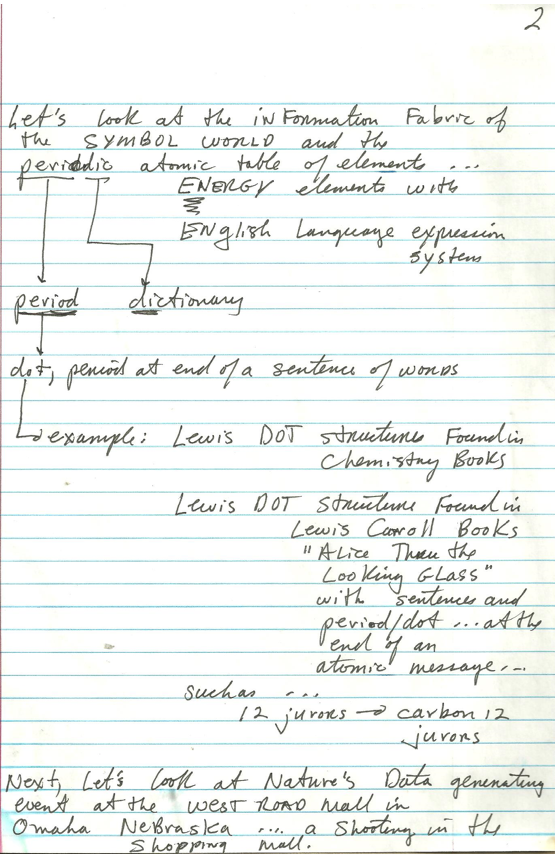 2
Let's look at the inFormation Fabric of
the SYMBOL WORLD and the
periodic atomic table of elements ...
ENERGY elements with
ENglish Language expression
system
period dictionary
dot, period at end of a sentence of words
example: Lewis DOT structures Found in
Chemistry Books
Lewis DOT structure Found in
Lewis Carroll Books
"Alice Thru the
Looking GLASS"
with sentences and
period/dot ... at the
end of an
atomic message...
such as ...
12 jurors → carbon 12
jurors
Next, Let's look at Nature's Data generating
event at the WEST ROAD Mall in
Omaha NeBraska .... a Shooting in the
Shopping Mall.